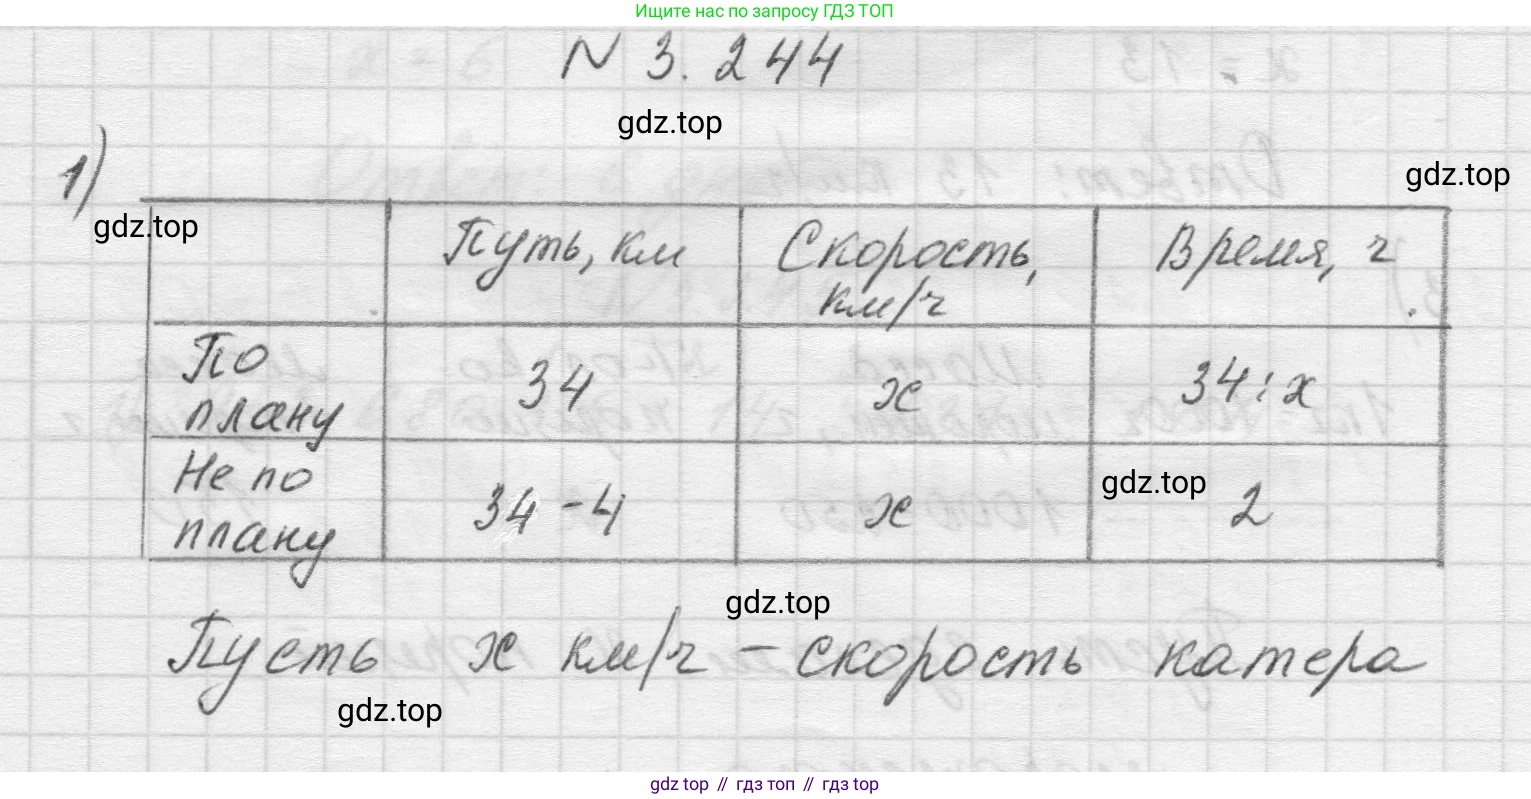 Ищите нас по запросу ГДЗ ТОП
N 3.244
gdz.top
1)
gdz.top
gdz.top
Путь, км
Скорость, км/ч
Время, ч
По плану
34
х
34:х
Не по плану
34-4
х
2
gdz.top
gdz.top
Пусть х км/ч - скорость катера
gdz.top
gdz top // гдз топ // гдз top